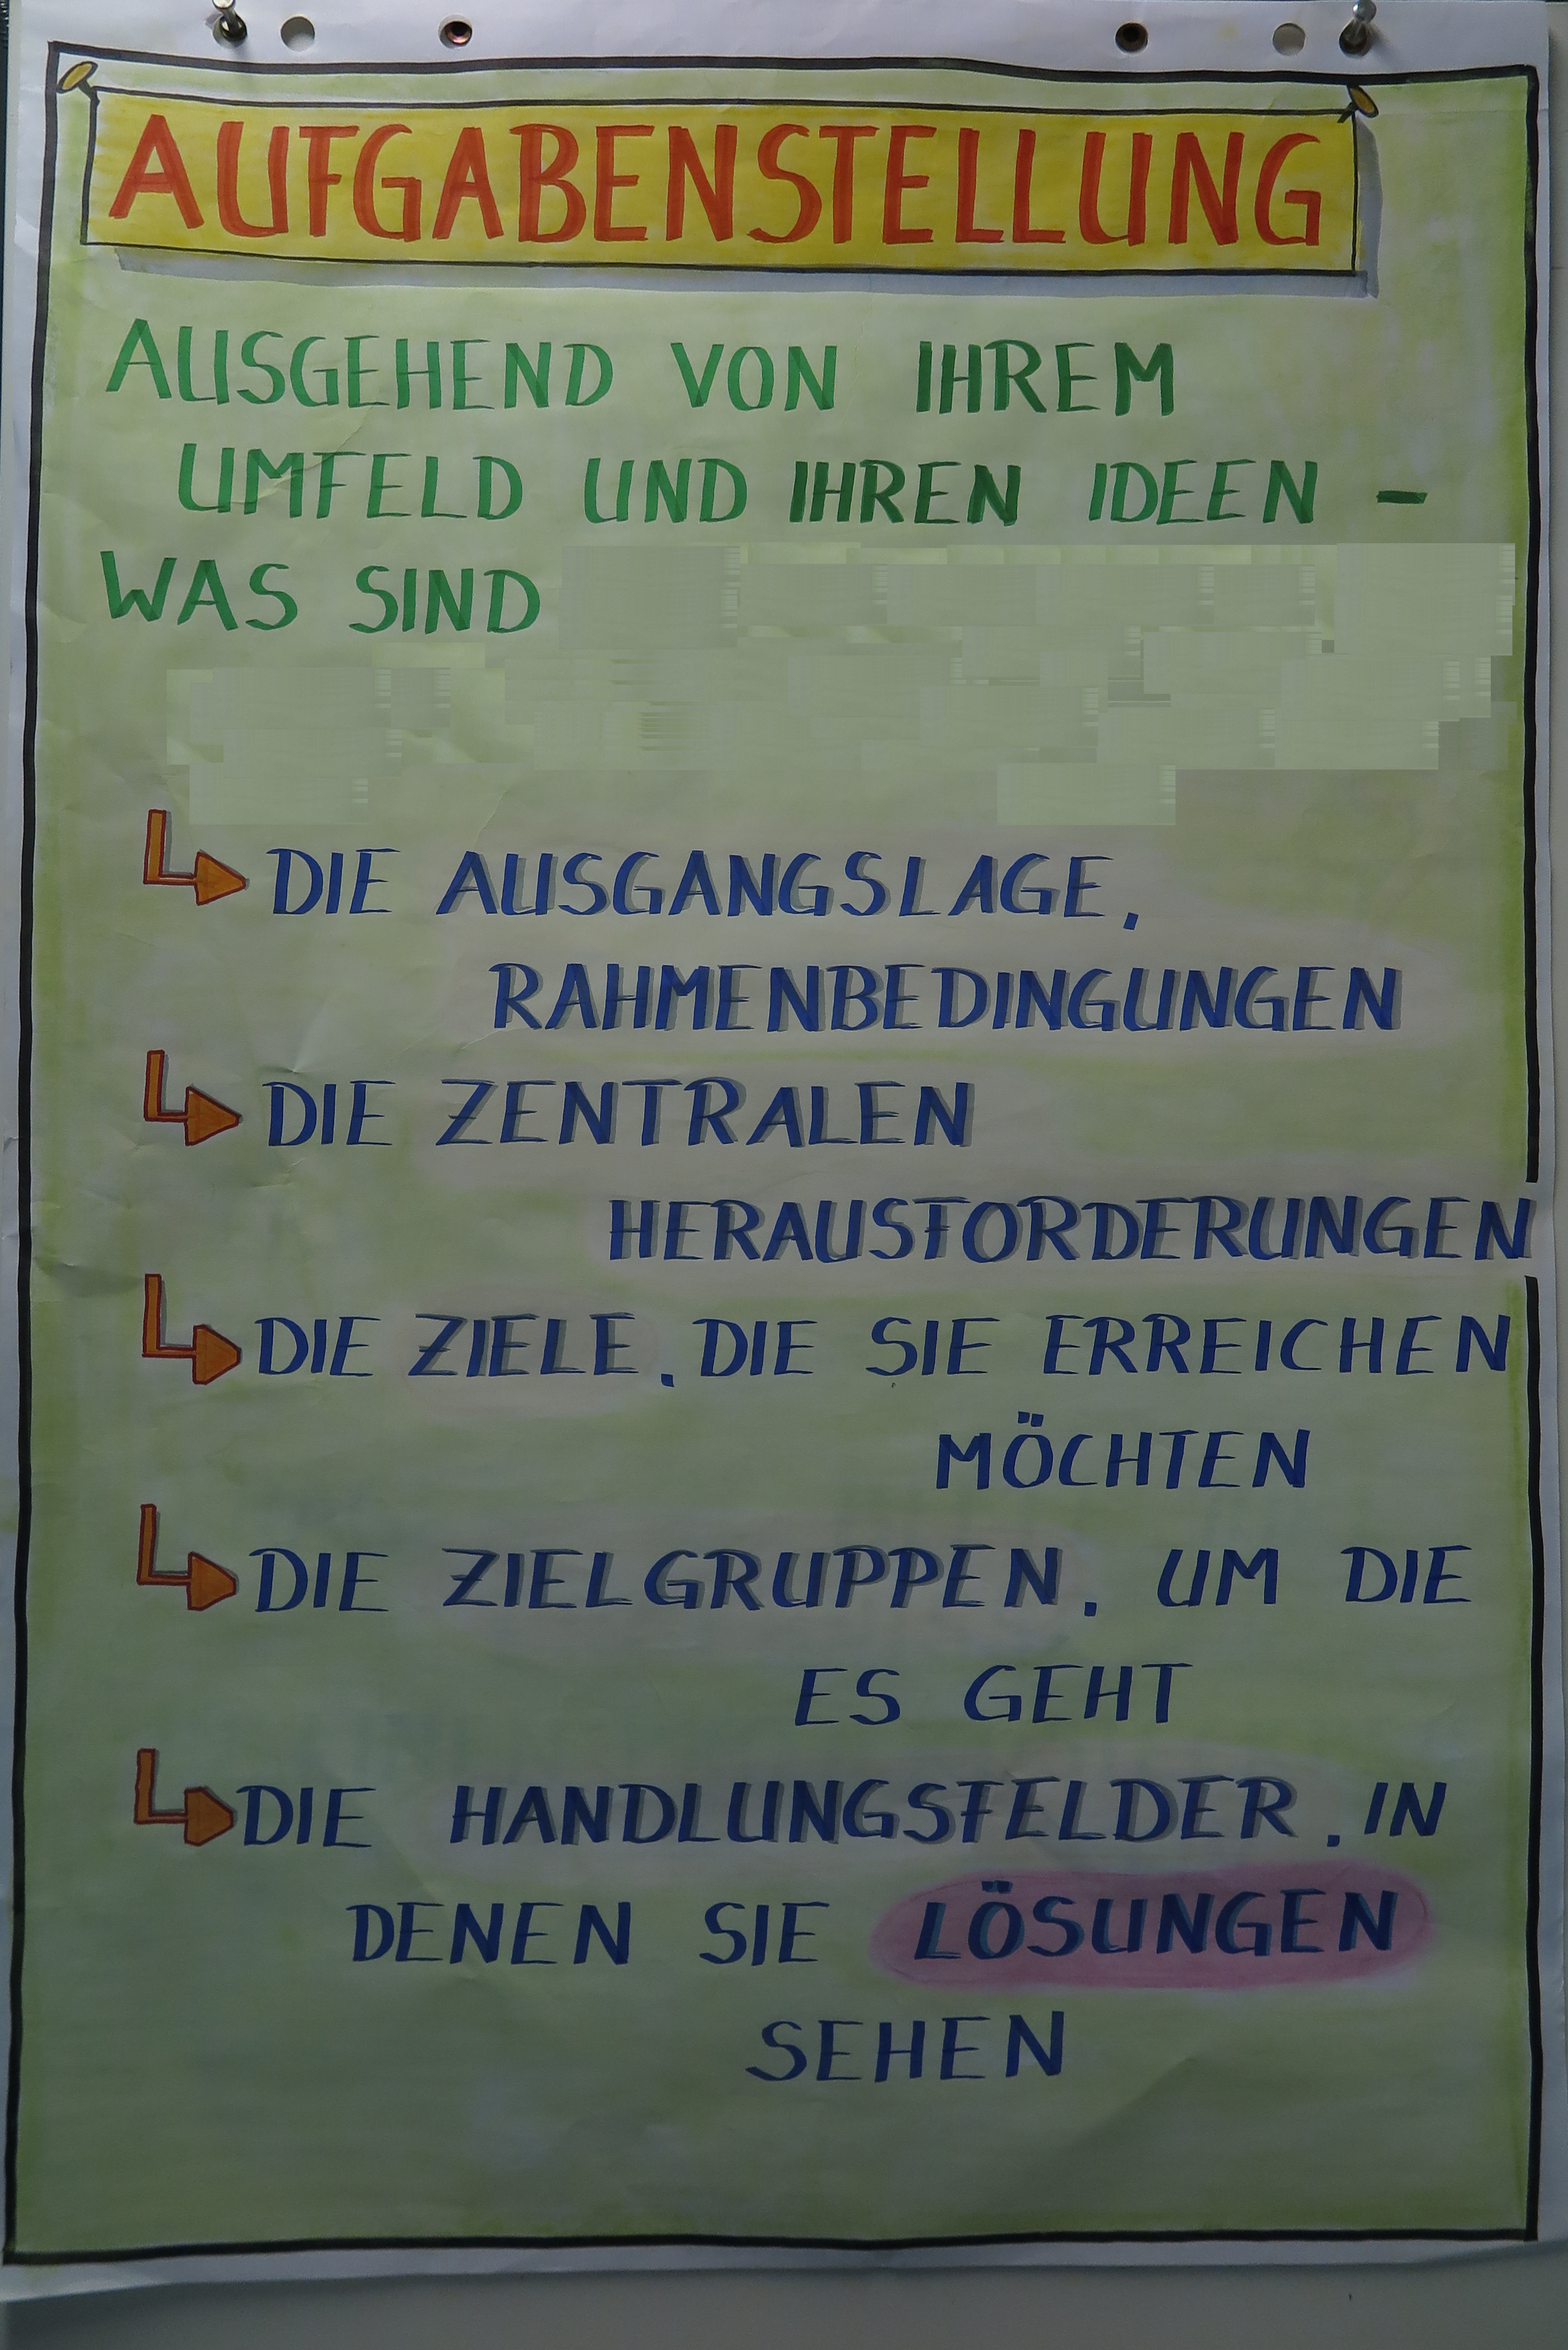 AUFGABENSTELLUNG
AUSGEHEND VON IHREM
UMFELD UND IHREN IDEEN –
WAS SIND
DIE AUSGANGSLAGE,
RAHMENBEDINGUNGEN
DIE ZENTRALEN
HERAUSFORDERUNGEN
DIE ZIELE, DIE SIE ERREICHEN
MÖCHTEN
DIE ZIELGRUPPEN, UM DIE
ES GEHT
DIE HANDLUNGSFELDER, IN
DENEN SIE LÖSUNGEN
SEHEN